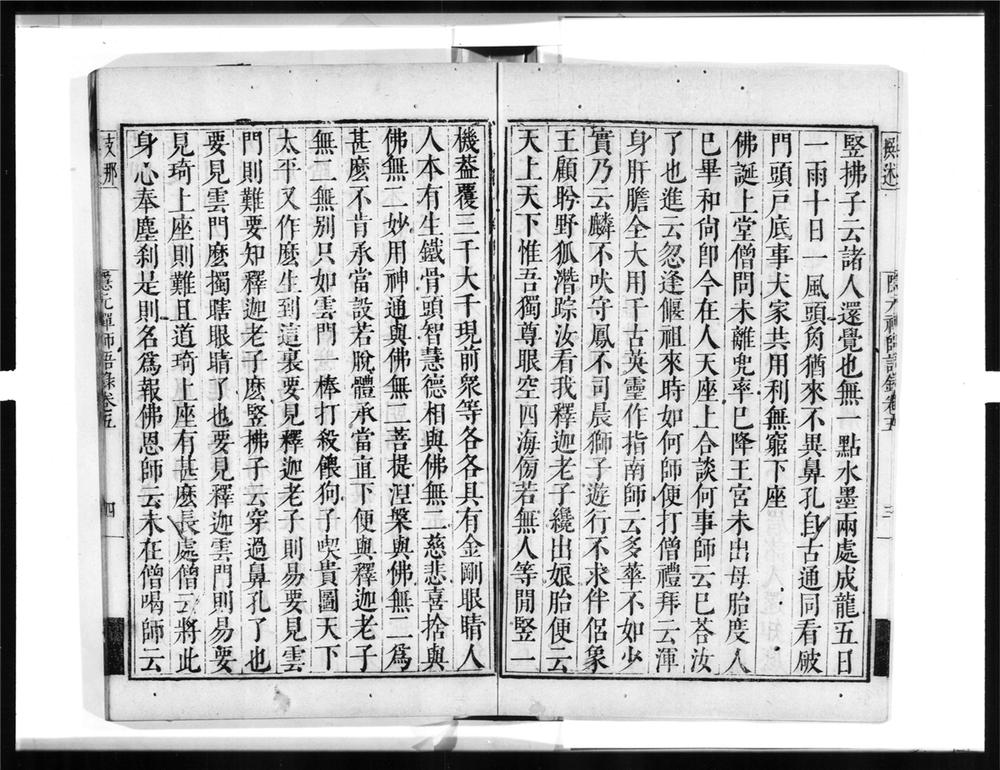 竪拂子云諸人還覺也無一點水墨兩處成龍五日
一雨十日一風頭角猶來不異鼻孔自古通同看破
門頭戸底事大家共用利無窮下座
佛誕上堂僧問未離兜率已降王宮未出母胎度人
已畢和尚卽今在人天座上合談何事師云已荅汝
了也進云忽逢偃祖來時如何師便打僧禮拜云渾
身肝膽全大用千古英靈作指南師云多華不如少
實乃云麟不吠守鳳不司晨獅子遊行不求伴侶象
王顧盻野狐潛踪汝看我釋迦老子纔出娘胎便云
天上天下惟吾獨尊眼空四海傍若無人等閒竪一
機葢覆三千大千現前衆等各各具有金剛眼睛人
人本有生鐵骨頭智慧德相與佛無二慈悲喜捨與
佛無二妙用神通與佛無二菩提涅槃與佛無二爲
甚麽不肯承當設若脫體承當直下便與釋迦老子
無二無别只如雲門一棒打殺儂狗子喫貴圖天下
太平又作麽生到這裏要見釋迦老子則易要見雲
門則難要知釋迦老子麽竪拂子云穿過鼻孔了也
要見雲門麽擉瞎眼睛了也要見釋迦雲門則易要
見琦上座則難且道琦上座有甚麽長處僧云將此
身心奉塵刹是則名爲報佛恩師云未在僧喝師云
支那
隱元禪師語錄卷五
四
隱元禪師語錄卷五
三